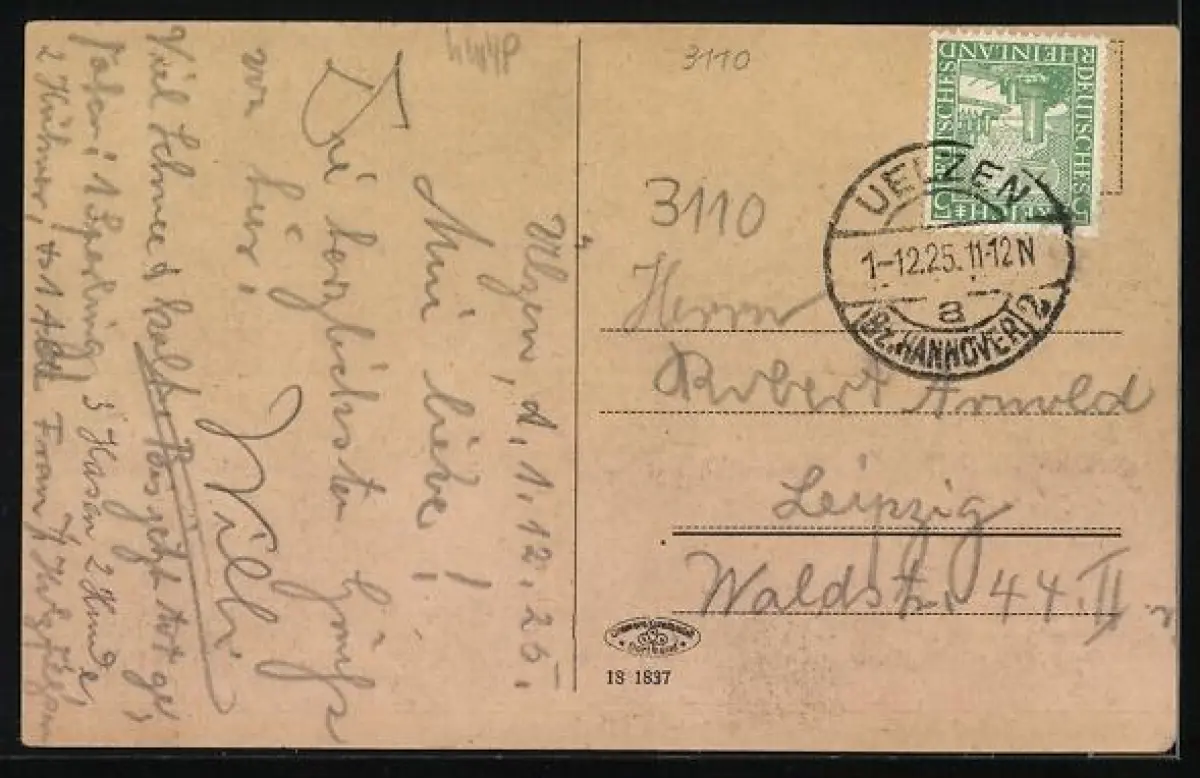 Ulzen, d, 1, 12, 25,
Mein liebe!
Die herzlichsten Grüße
von hier!
Willi
Viel Schnee & kalt. Bis jetzt tot ge,
1 Sperling, 3 Hasen 2 Hunde,
2 Hühner, 1 Alte Frau
3110
3110
DEUTSCHES REICH
RHEINLAND
5 5
UELZEN
1-12.25. 11-12 N
a
(Bz. HANNOVER) 2
Herrn
Robert Arnold
Leipzig
Waldstr. 44 II
Dortmund
13 1837